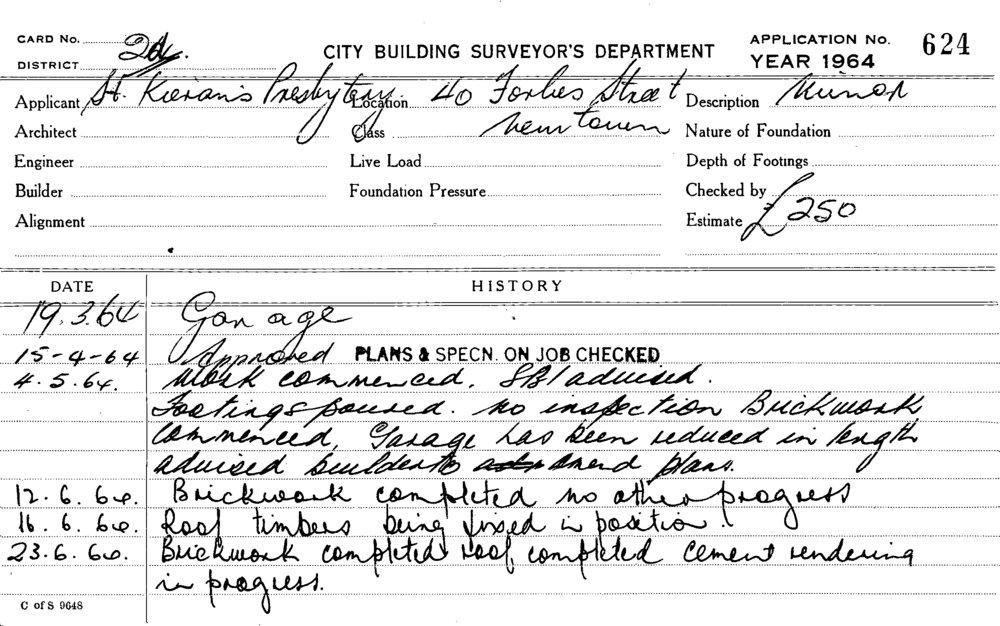 CARD No. 2d.
DISTRICT
CITY BUILDING SURVEYOR'S DEPARTMENT
APPLICATION No. 624
YEAR 1964
Applicant St. Kieran's Presbytery. Location 40 Forbes Street Description Minor
Architect Class Newtown Nature of Foundation
Engineer Live Load Depth of Footings
Builder Foundation Pressure Checked by
Alignment Estimate £250
DATE HISTORY
19.3.64 Garage
15-4-64 Approved PLANS & SPECN. ON JOB CHECKED
4.5.64. Work commenced. SBI advised.
Footings poured. No inspection Brickwork
commenced. Garage has been reduced in length
advised builder to amend plans.
12.6.64. Brickwork completed no other progress
16.6.64. Roof timbers being fixed in position.
23.6.64. Brickwork completed roof completed cement rendering
in progress.
C of S 9648